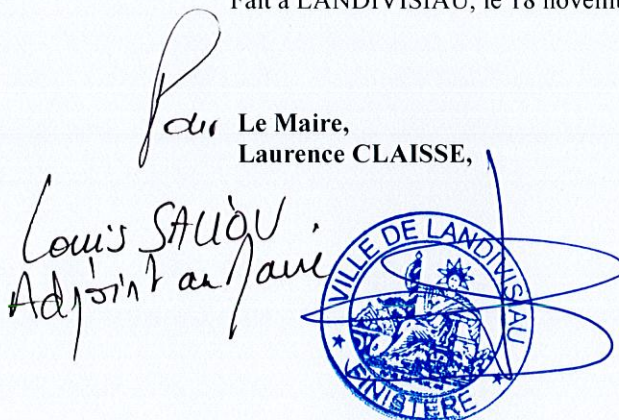 Fait à LANDIVISIAU, le 18 novem
Pour Le Maire,
Laurence CLAISSE,
Louis SALIOU
Adjoint au Maire
VILLE DE LANDIVISIAU
★ FINISTERE ★